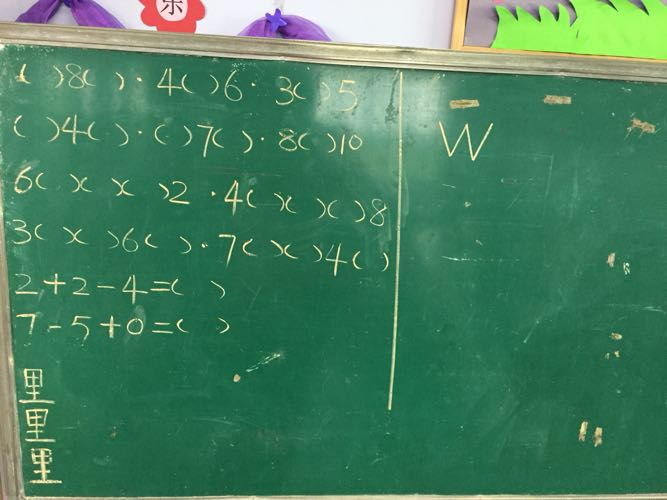 乐
( )8( ). 4( )6. 3( )5
( )4( ). ( )7( ). 8( )10
6( )( )( )2. 4( )( )( )8
3( )( )6( ). 7( )( )4( )
2+2-4=( )
7-5+0=( )
里
里
里
W